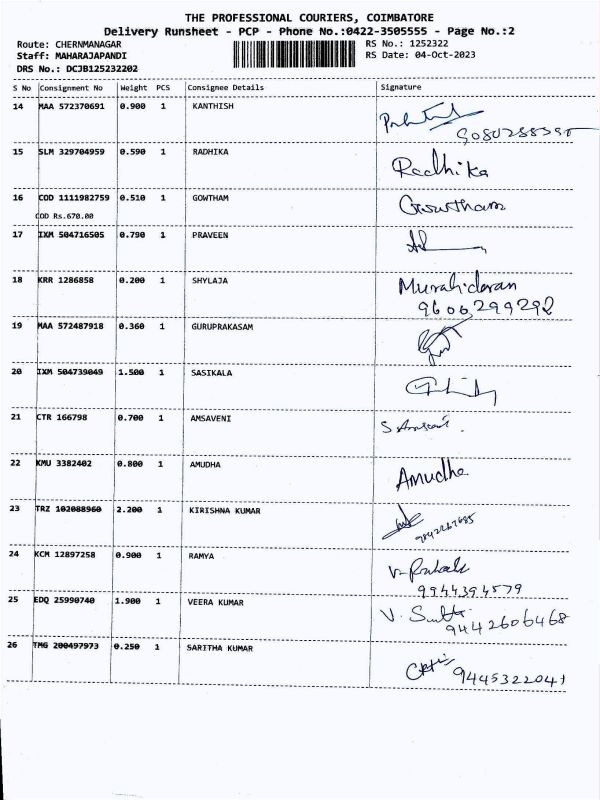 THE PROFESSIONAL COURIERS, COIMBATORE
Delivery Runsheet - PCP - Phone No.:0422-3505555 - Page No.:2
Route: CHERNMANAGAR RS No.: 1252322
Staff: MAHARAJAPANDI RS Date: 04-Oct-2023
DRS No.: DCJB125232202
S No Consignment No Weight PCS Consignee Details Signature
14 MAA 572370691 0.900 1 KANTHISH
15 SLM 329704959 0.590 1 RADHIKA Radhika
16 COD 1111982759 0.510 1 GOWTHAM Gowtham
COD Rs.670.00
17 IXM 504716505 0.790 1 PRAVEEN
18 KRR 1286858 0.200 1 SHYLAJA Muralidaran
9600299292
19 MAA 572487918 0.360 1 GURUPRAKASAM
20 IXM 504739049 1.500 1 SASIKALA
21 CTR 166798 0.700 1 AMSAVENI
22 KMU 3382402 0.800 1 AMUDHA Amudha
23 TRZ 102088960 2.200 1 KIRISHNA KUMAR
24 KCM 12897258 0.900 1 RAMYA
9944394579
25 EDQ 25990740 1.900 1 VEERA KUMAR
9442606468
26 TMG 200497973 0.250 1 SARITHA KUMAR
9445322041